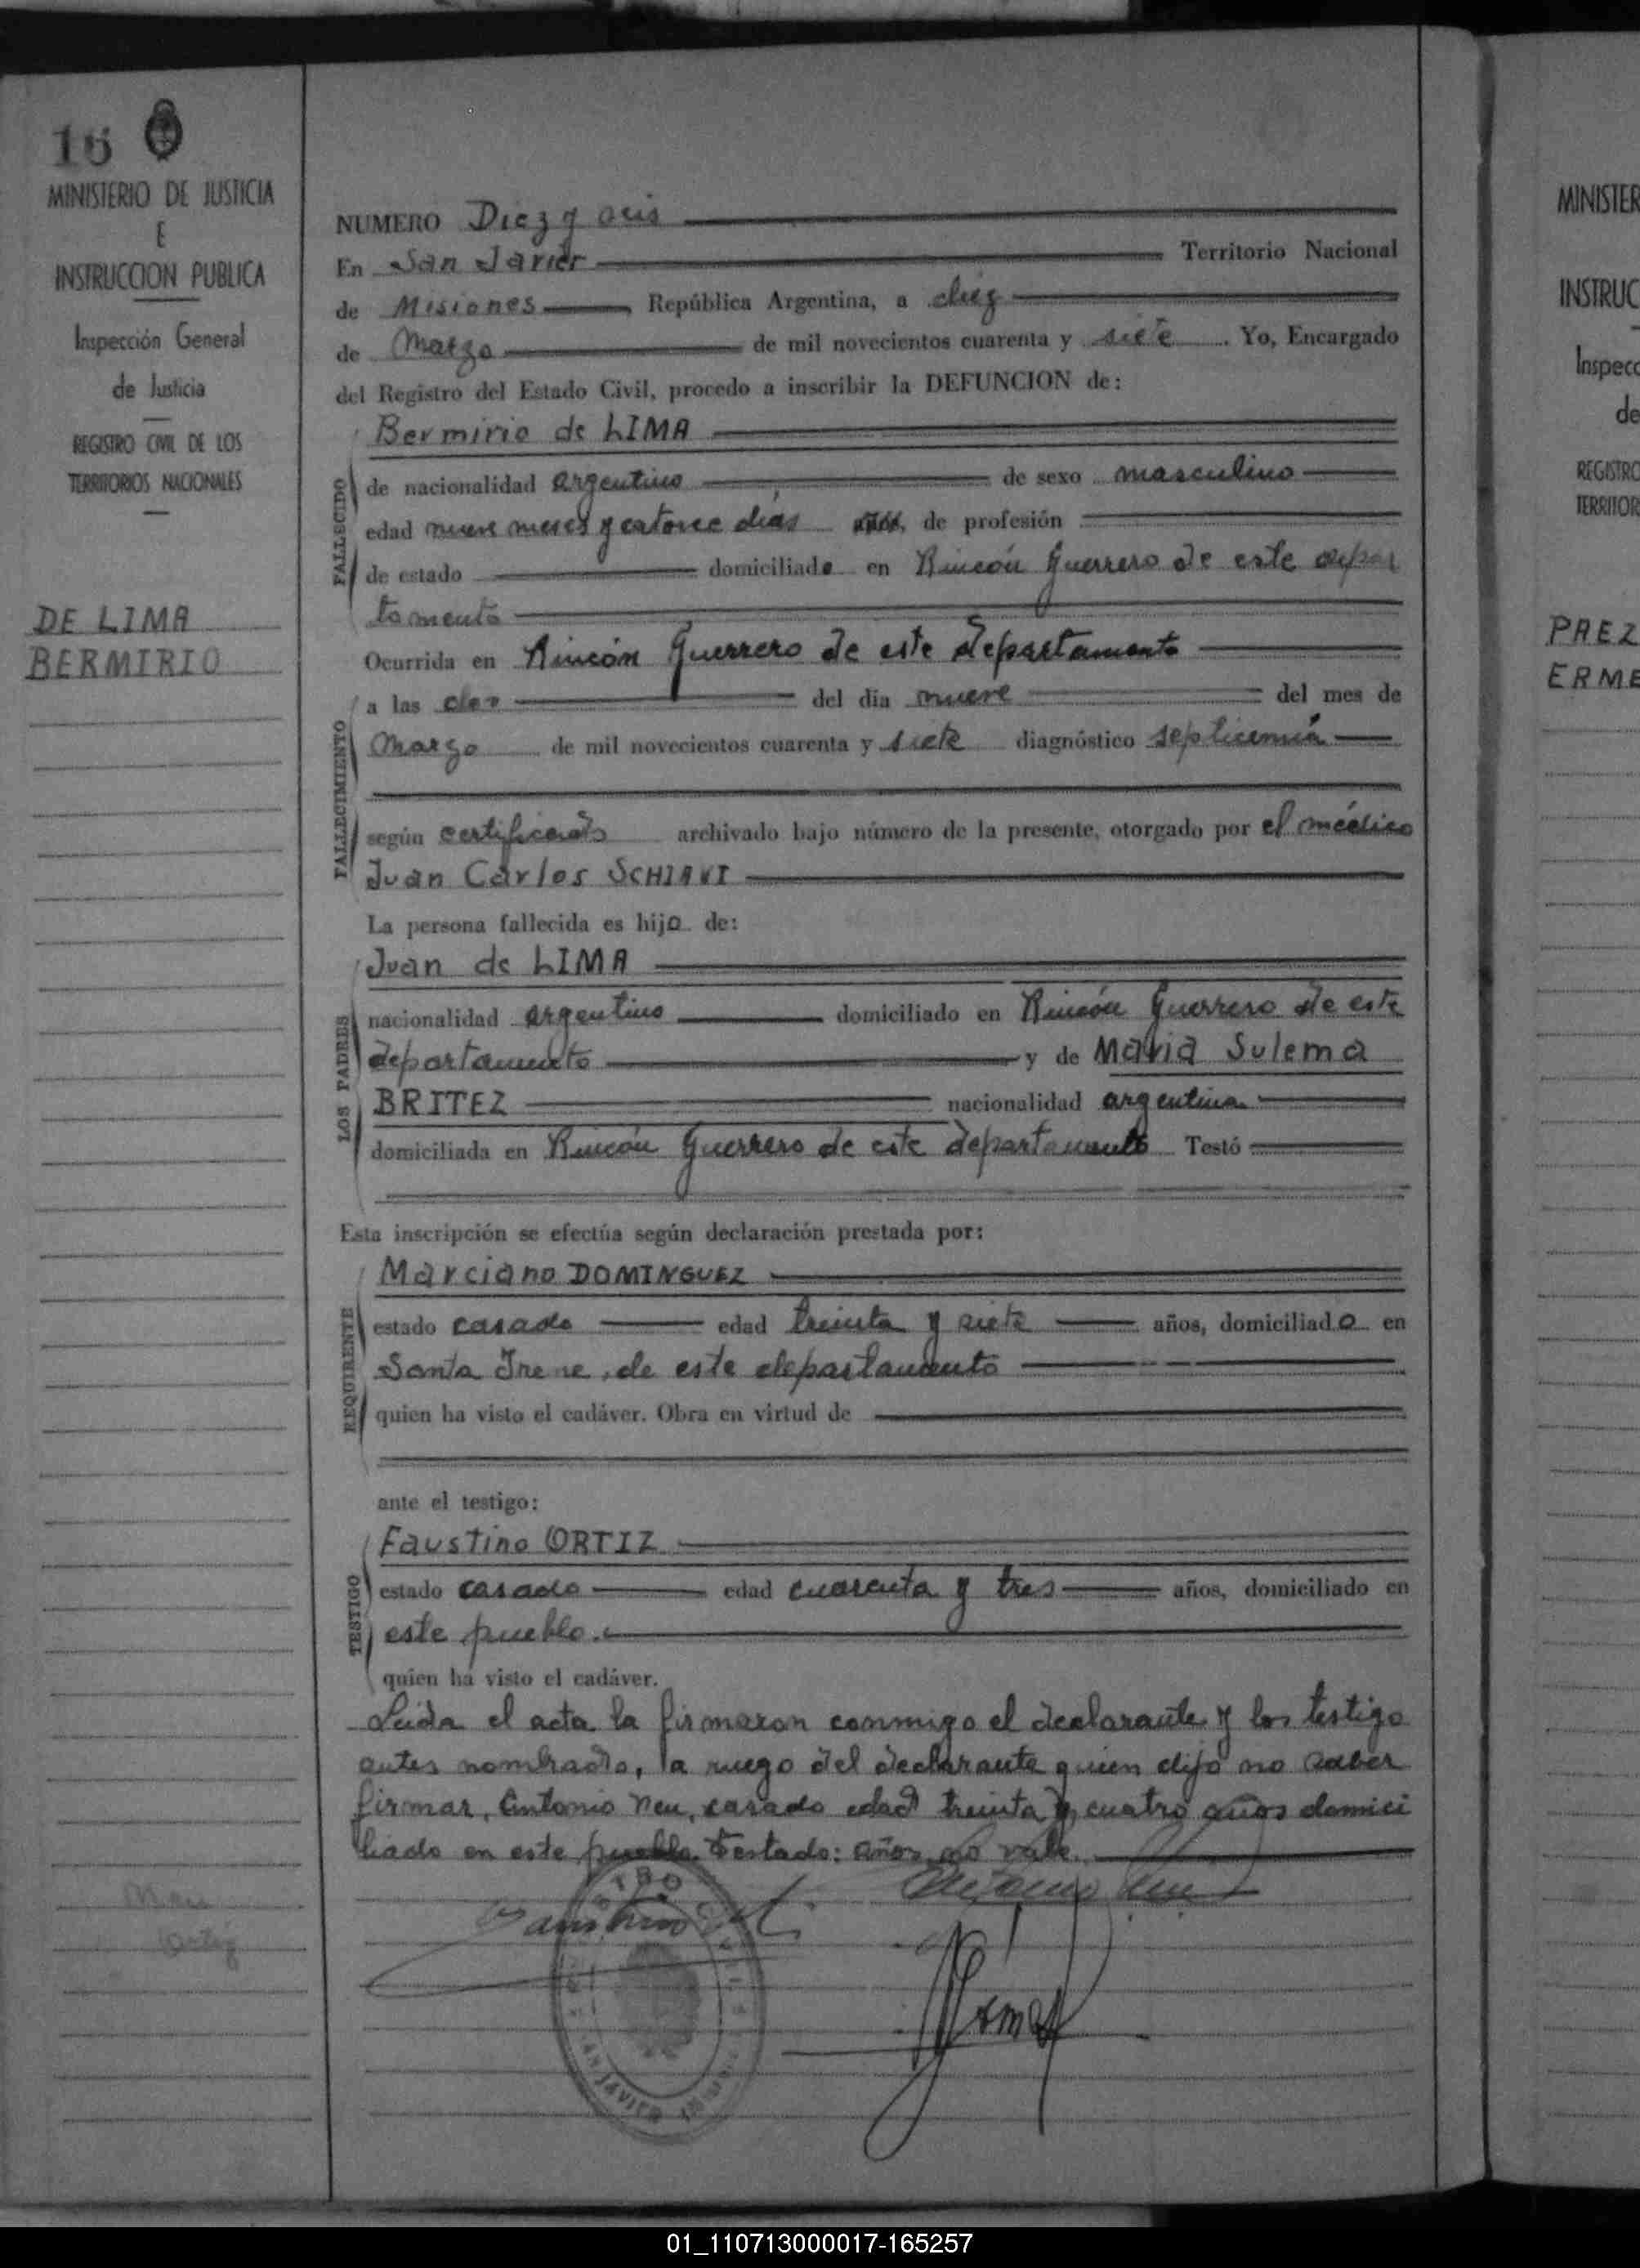 16
MINISTERIO DE JUSTICIA
E
INSTRUCCION PUBLICA
Inspección General
de Justicia
REGISTRO CIVIL DE LOS
TERRITORIOS NACIONALES
DE LIMA
BERMIRIO
Neu
Ortiz
NUMERO Diez y seis
En San Javier Territorio Nacional
de Misiones República Argentina, a diez
de Marzo de mil novecientos cuarenta y siete. Yo, Encargado
del Registro del Estado Civil, procedo a inscribir la DEFUNCION de:
Bermirio de LIMA
FALLECIDO
de nacionalidad argentino de sexo masculino
edad nueve meses y catorce días años, de profesión
de estado domiciliado en Rincón Guerrero de este depar
tamento
Ocurrida en Rincón Guerrero de este departamento
FALLECIMIENTO
a las del día nueve del mes de
Marzo de mil novecientos cuarenta y siete diagnóstico septicemia
según certificado archivado bajo número de la presente, otorgado por el médico
Juan Carlos SCHIAVI
La persona fallecida es hijo de:
LOS PADRES
Juan de LIMA
nacionalidad argentino domiciliado en Rincón Guerrero de este
departamento y de Maria Sulema
BRITEZ nacionalidad argentina
domiciliada en Rincón Guerrero de este departamento Testó
Esta inscripción se efectúa según declaración prestada por:
REQUIRENTE
Marciano DOMINGUEZ
estado casado edad treinta y siete años, domiciliado en
Santa Irene, de este departamento
quien ha visto el cadáver. Obra en virtud de
ante el testigo:
TESTIGO
Faustino ORTIZ
estado casado edad cuarenta y tres años, domiciliado en
este pueblo.
quien ha visto el cadáver.
Leida el acta la firmaron conmigo el declarante y los testigo
antes nombrado, a ruego del declarante quien dijo no saber
firmar, Antonio Neu, casado edad treinta y cuatro años domici
liado en este pueblo. Testado: años no vale.
Antonio Neu
Faustino
MINISTER
INSTRUC
Inspecc
de
REGISTRO
TERRITOR
PAEZ
ERME
01_110713000017-165257